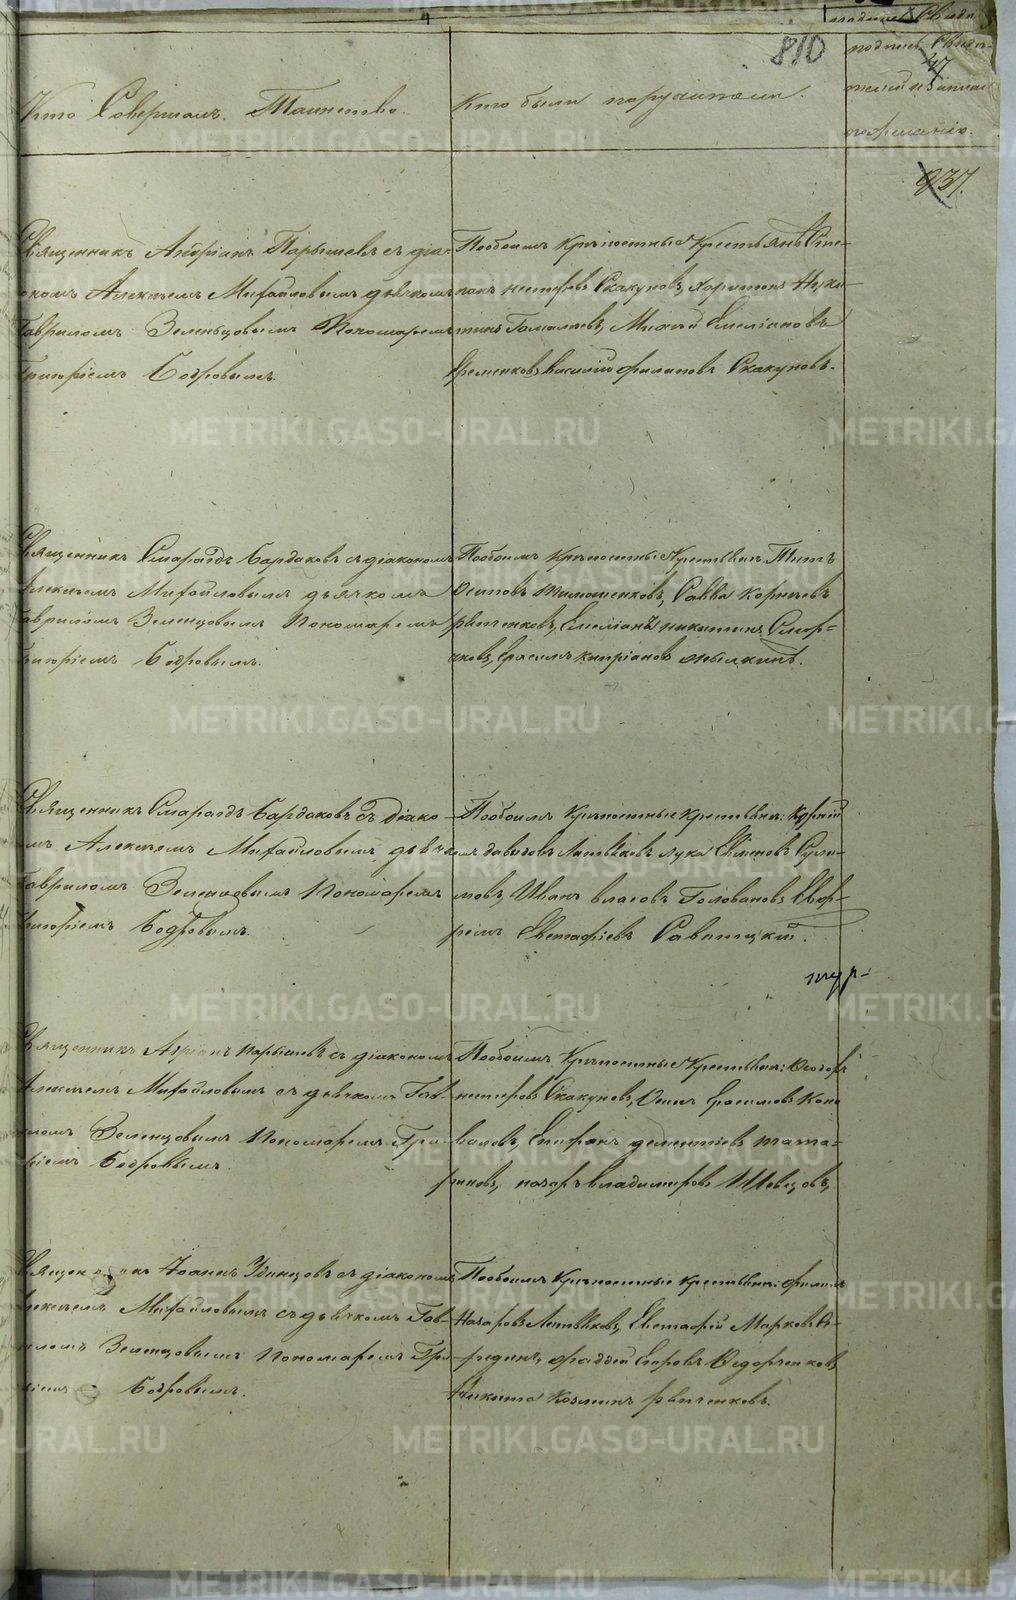 810
Кто Совершалъ Таинство.
Кто были поручители.
подпись Свиде-
телей и записи
по желанію.
937.
Священникъ Андріанъ Парышевъ съ діа-
кономъ Алексѣемъ Михайловымъ дьячкомъ
Гавриломъ Зеленцовымъ Пономаремъ
Григоріемъ Бобровымъ.
Пообоимъ Крѣпостные Крестьянѣ Сте-
панъ нестеровъ Скакуновъ, Харитонъ Ники-
тинъ Гамалѣевъ, Михей Емеліановъ
Еременковъ Василій филиповъ Скакуновъ.
Священникъ Смарагдъ Бардаковъ съ діакономъ
Алексѣемъ Михайловымъ дьячкомъ
Гавриломъ Зеленцовымъ Пономаремъ
Григоріемъ Бобровымъ.
Пообоимъ Крѣпостные Крестьяне Титъ
Осиповъ Тимошенковъ, Савва Корнѣевъ
рѣпченковъ, Емеліанъ никитинъ Смор-
чковъ, Ерасимъ кипріановъ
Священникъ Смарагдъ Бардаковъ съ діако-
номъ Алексѣемъ Михайловымъ дьячкомъ
Гавриломъ Зеленцовымъ Пономаремъ
Григоріемъ Бобровымъ.
Пообоимъ Крѣпостные крестьяне: Корнѣй
давыдовъ Литвяковъ лука Семеновъ Сули-
мовъ, Иванъ власовъ Головановъ,
Евстафіевъ Савитцкій.
Священникъ Андріанъ Парышевъ съ діакономъ
Алексѣемъ Михайловымъ съ дьячкомъ Гав-
риломъ Зеленцовымъ Пономаремъ Гри-
горіемъ Бобровымъ.
Пообоимъ Крѣпостные Крестьяне: Ѳеодоръ
нестеровъ Скакуновъ, Осипъ Ерасимовъ Коно-
валовъ, Епифанъ дементіевъ тата-
риновъ, назаръ владимеровъ Шевцовъ,
Священникъ Іоаннъ Удинцовъ съ діакономъ
Алексѣемъ Михайловымъ съ дьячкомъ Гав-
риломъ Зеленцовымъ Пономаремъ Гри-
горіемъ Бобровымъ.
Пообоимъ Крѣпостные крестьяне: филипъ
Назаровъ Литвяковъ, Евстафій Марковъ Се-
рединъ, фаддей Егоровъ Ѳедорченковъ,
Никита Козминъ рѣпченковъ.
METRIKI.GASO-URAL.RU